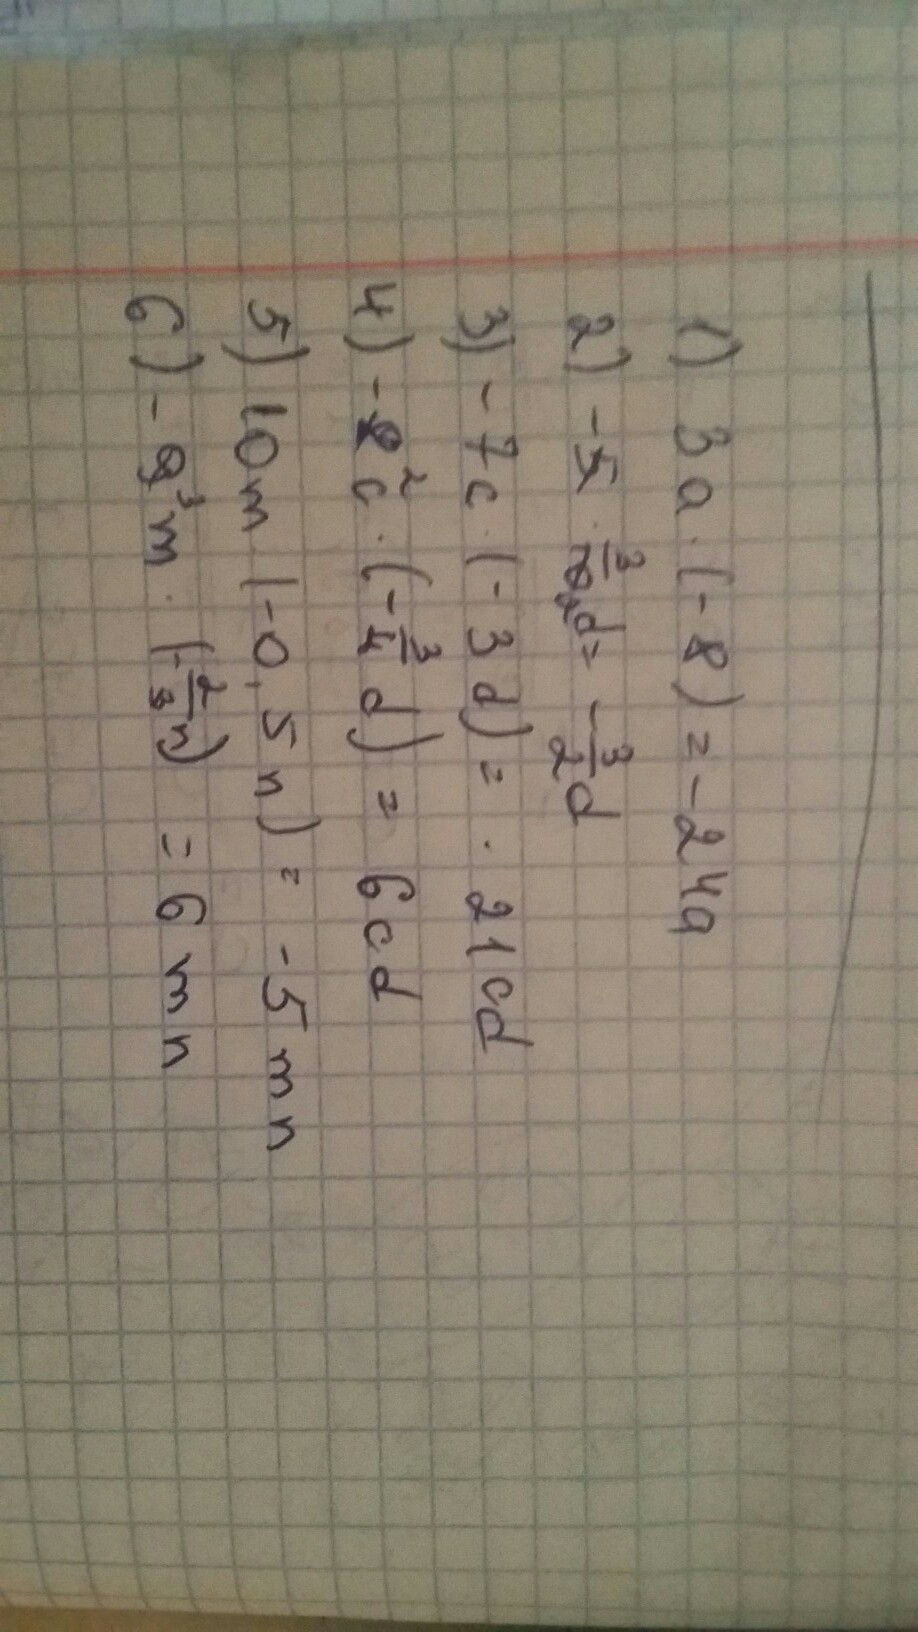 1) 3a · (-8) = -24a
2) -5 · 3/10 d = -3/2 d
3) -7c · (-3d) = 21cd
4) -8²c · (-3/4 d) = 6cd
5) 10m (-0,5n) = -5mn
6) -9³m · (-2/3 n) = 6mn